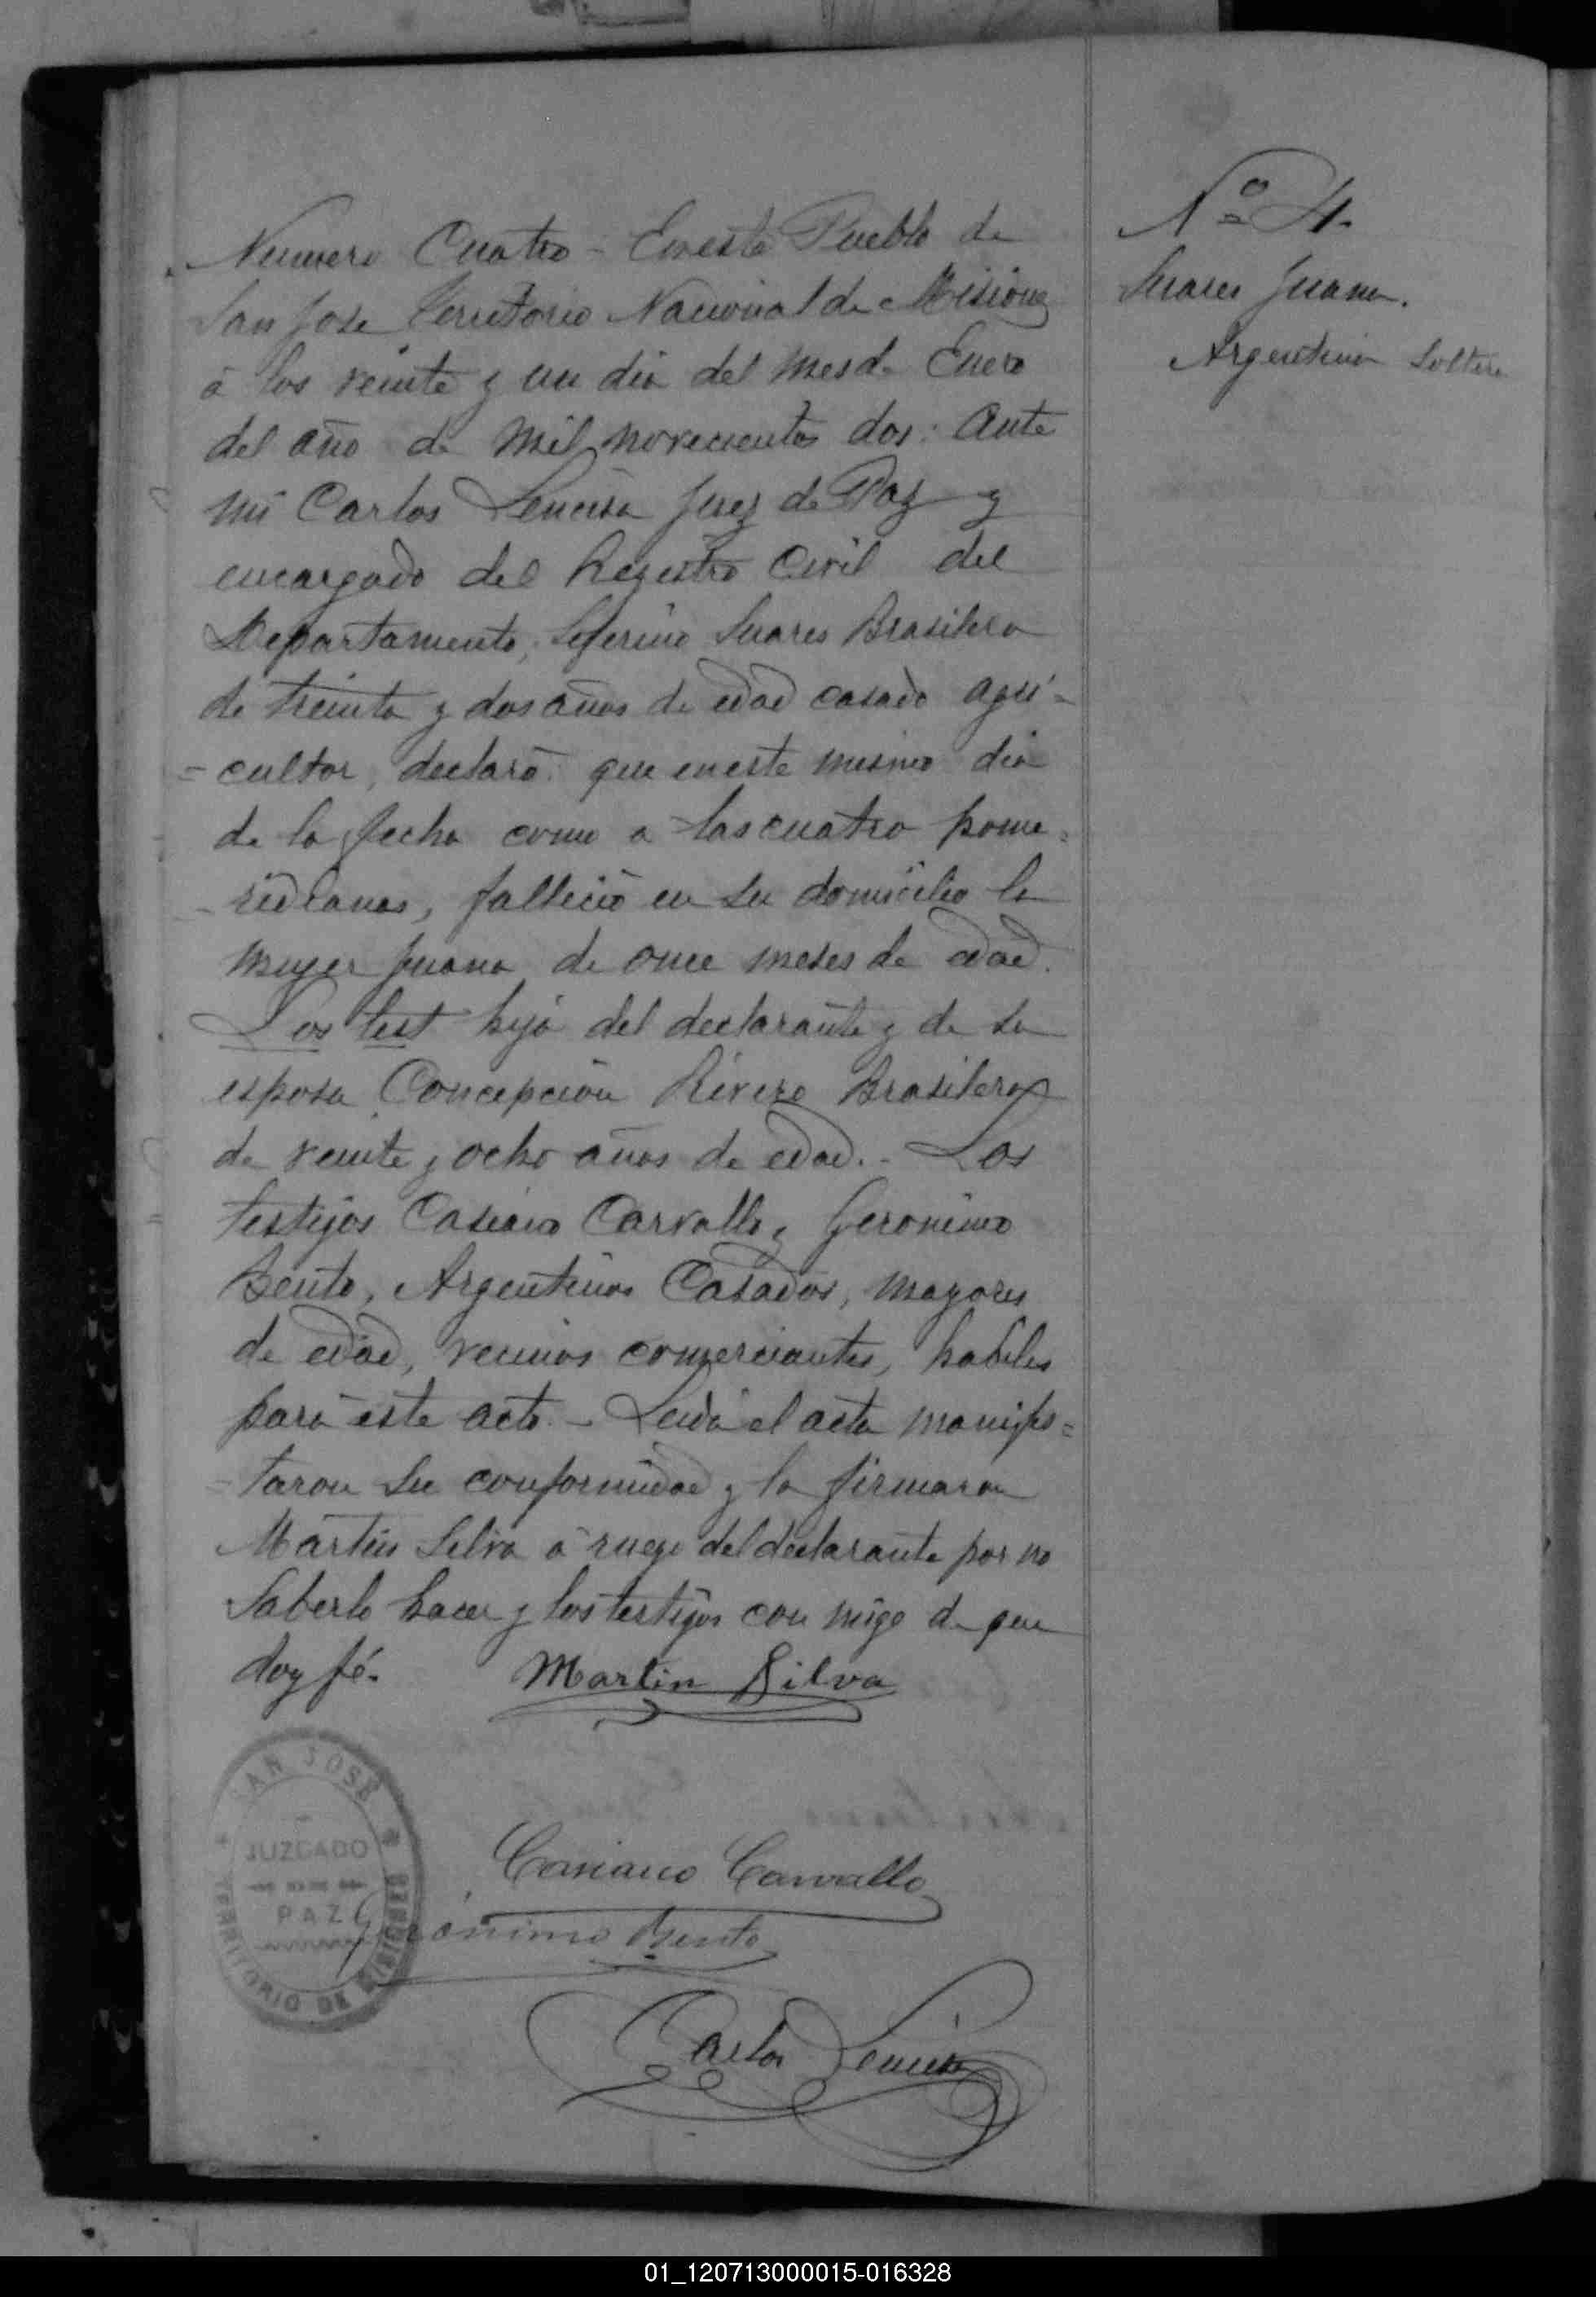 Numero Cuatro - En este Pueblo de
San Jose Territorio Nacional de Misiones
á los veinte y un dia del mes de Enero
del año de mil novecientos dos: Ante
mi Carlos Lencisa Juez de Paz y
encargado del Registro Civil del
Departamento, Seferino Suares Brasilero
de treinta y dos años de edad casado agri-
=cultor, declaró: que en este mismo dia
de la fecha como a las cuatro pome=
ridianas, falleció en su domicilio la
mujer Juana de once meses de edad.
Los test hija del declarante y de su
esposa Concepción Rivero Brasilera
de veinte y ocho años de edad. - Los
testigos Casiano Carvallo y Geronimo
Bento, Argentinos Casados, mayores
de edad, vecinos comerciantes, habiles
para este acto. - Leida el acta manifes=
=taron su conformidad y la firmaron
Martin Silva á ruego del declarante por no
saberlo hacer y los testigos con migo de que
doy fé.
Martin Silva
SAN JOSÉ
JUZGADO
DE
PAZ
TERRITORIO DE MISIONES
Casiano Carvallo
Gerónimo Bento
Carlos Lencisa
Nº 4.
Suares Juana.
Argentina Soltera
01_120713000015-016328